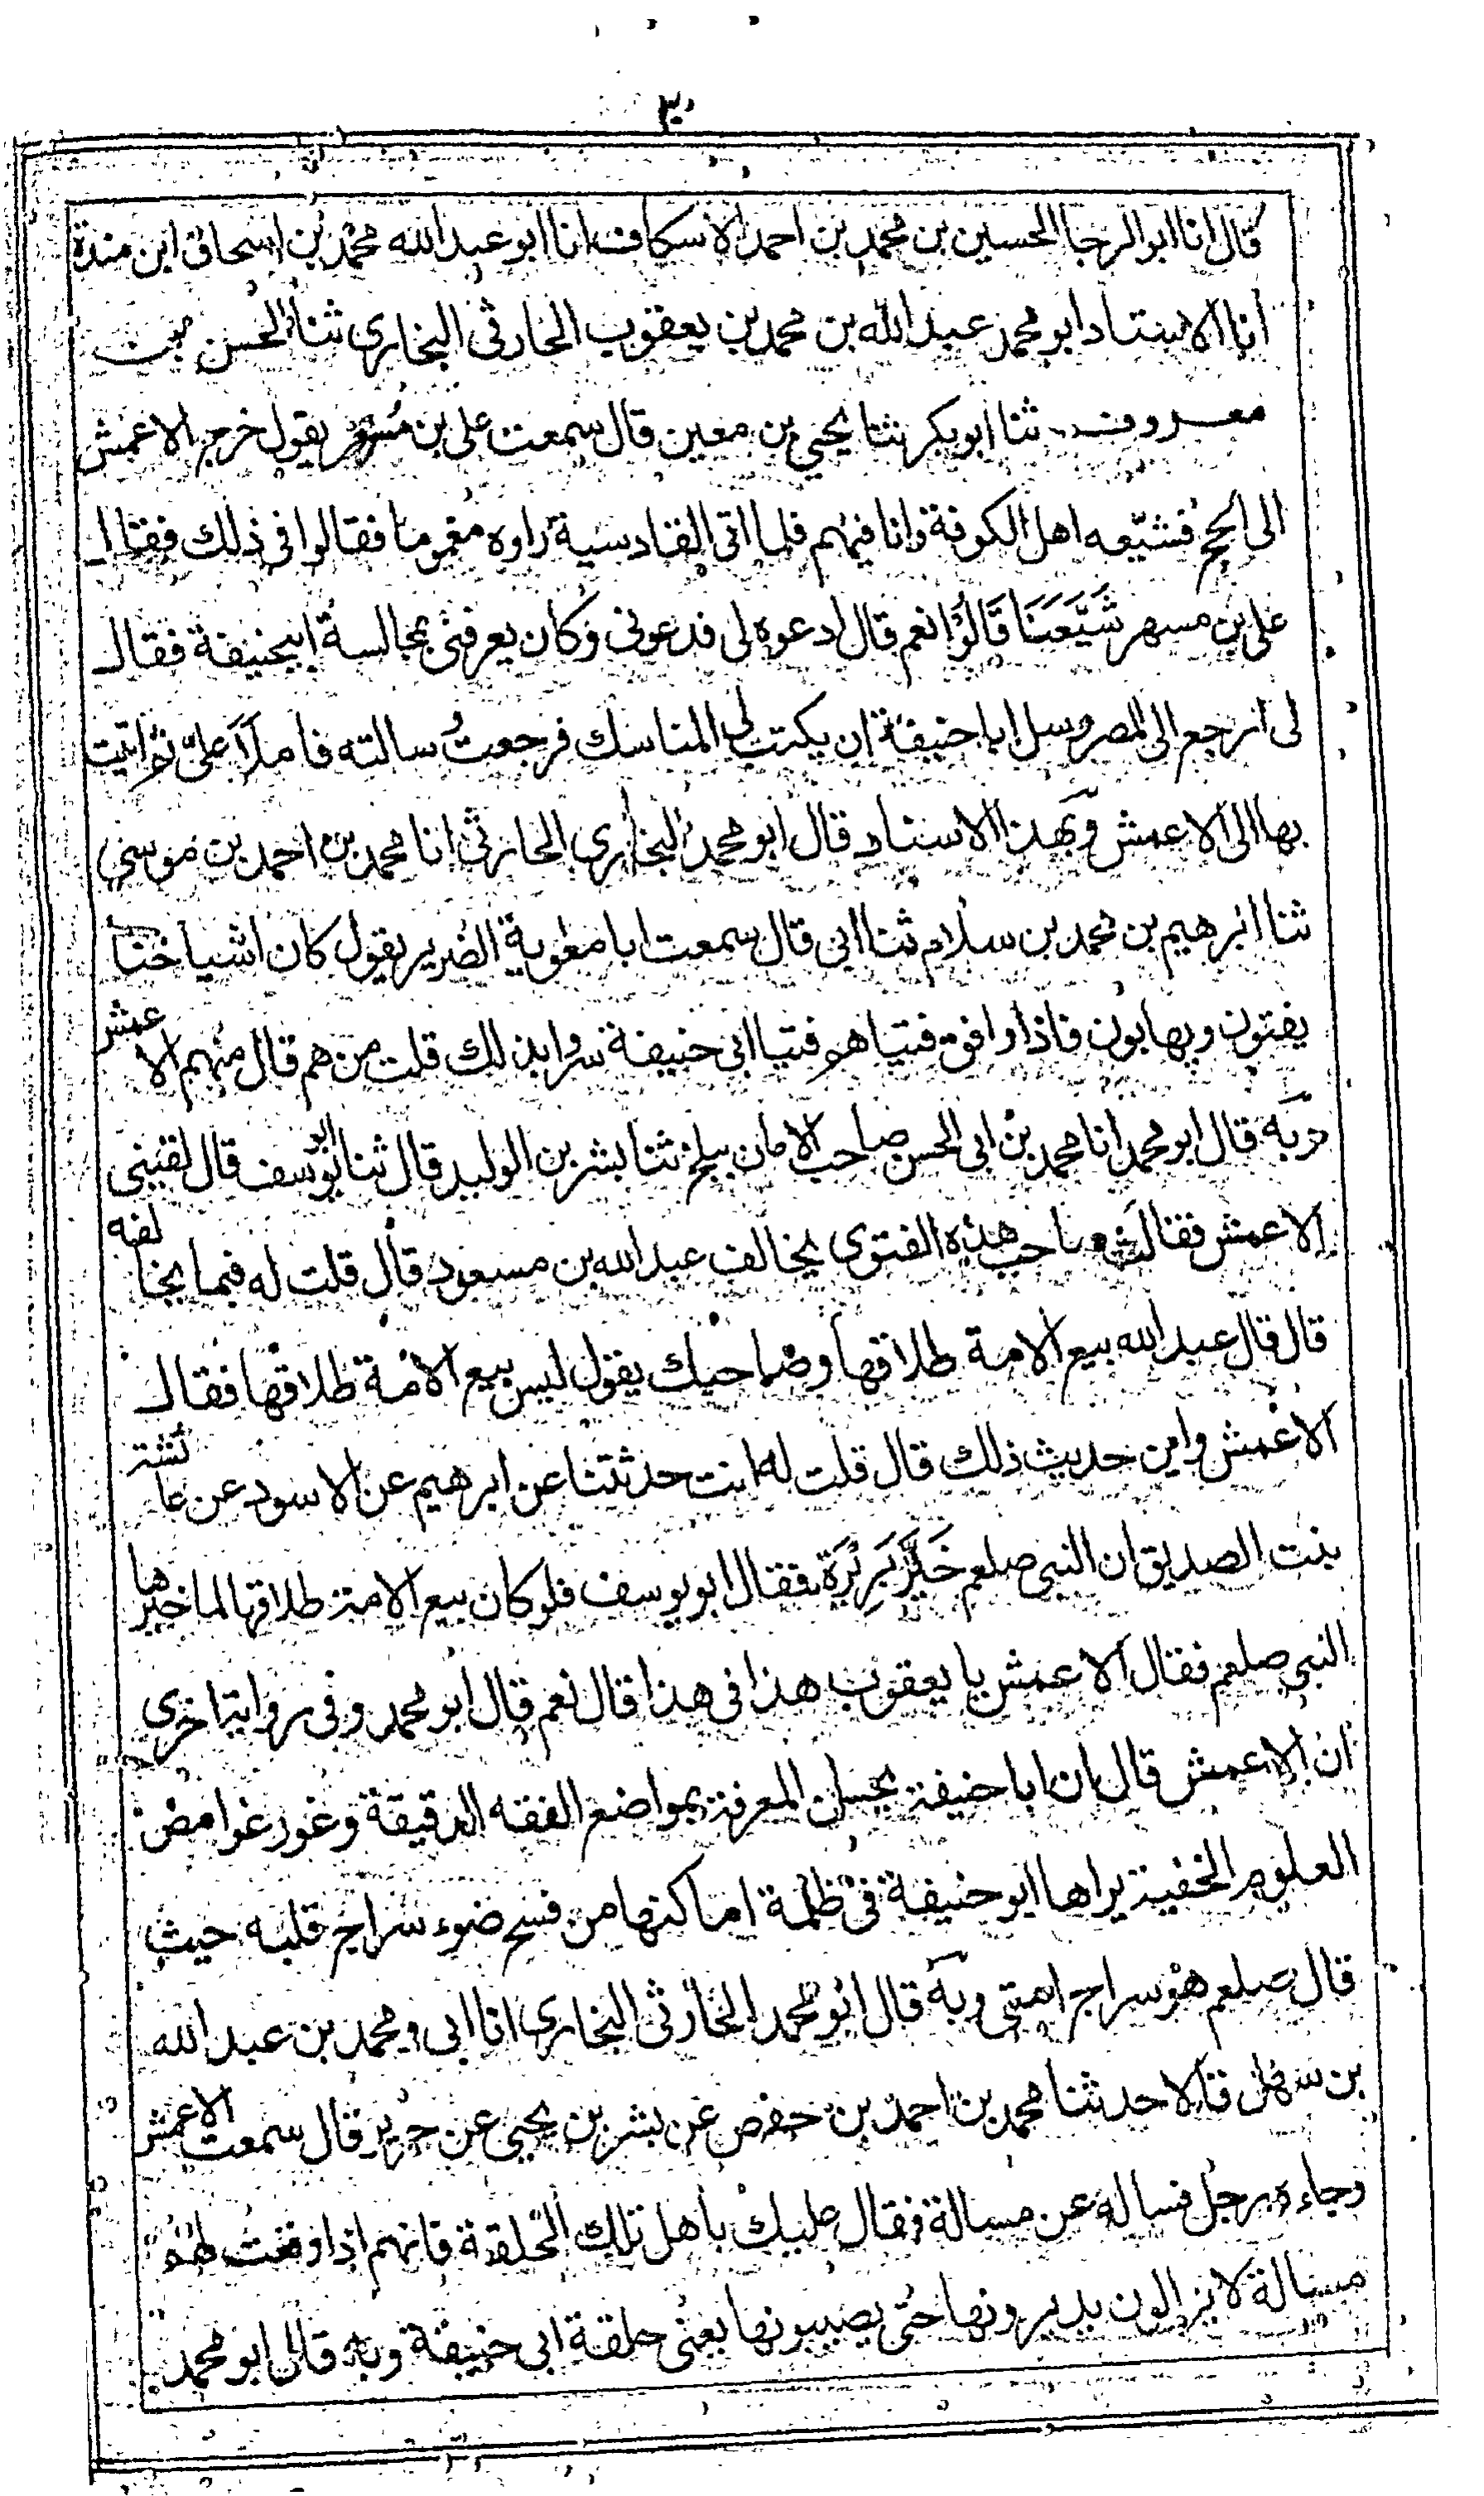 ٣٠
قال انا ابو الرجا الحسين بن محمد بن احمد الاسكاف انا ابو عبد الله محمد بن اسحاق ابن مندة
انا الاستاد ابو محمد عبد الله بن محمد بن يعقوب الحارثى البخارى ثنا الحسن بن
معروف ثنا ابو بكر ثنا يحيى بن معين قال سمعت على بن مسهر يقول خرج الاعمش
الى الحج فشيّعه اهل الكوفة وانا فيهم فلما اتى القادسية راوه مغموما فقالوا فى ذلك فقال
على بن مسهر شَيَّعَنَا قَالُوْا نعم قال ادعوه لى فدعونى وكان يعرفنى بمجالسة ابيحنيفة فقال
لى ارجع الى المصر وسل ابا حنيفة ان يكتب لى المناسك فرجعتُ سالته فاملأ علىّ ثم اتيت
بها الى الاعمش وبهذا الاسناد قال ابو محمد البخارى الحارثى انا محمد بن احمد بن موسى
ثنا ابرهيم بن محمد بن سلام ثنا ابى قال سمعت ابا معٰوية الضرير يقول كان اشياخنا
يفتون ويهابون فاذا وافق فتياهو فتيا ابى حنيفة سروا بذلك قلت من هم قال منهم الاعمش
وبه قال ابو محمد انا محمد بن ابى الحسن صاحب الامان ببلخ ثنا بشر بن الوليد قال ثنا ابو يوسف قال لقينى
الاعمش فقال صاحب هذه الفتوى يخالف عبد الله بن مسعود قال قلت له فيما يخالفه
قال قال عبد الله بيع الامة طلاقها وصاحبك يقول ليس بيع الامة طلاقها فقال
الاعمش واين حديث ذلك قال قلت له انت حدثتنا عن ابرهيم عن الاسود عن عائشة
بنت الصديق ان النبى صلعم خَيَّرَ بَرِيْرَة فقال ابو يوسف فلو كان بيع الامة طلاقها لما خيرها
النبى صلعم فقال الاعمش يا يعقوب هذا فى هذا قال نعم قال ابو محمد وفى رواية اخرى
ان الاعمش قال ان ابا حنيفة بحسن المعرفة بمواضع الفقه الدقيقة وغور غوامض
العلوم الخفية يراها ابو حنيفة فى ظلمة اماكنها من فسح ضوء سراج قلبه حيث
قال صلعم هو سراج امتى وبه قال ابو محمد الحارثى البخارى انا ابى ومحمد بن عبد الله
بن سهل قالا حدثنا محمد بن احمد بن حفص عن بشر بن يحيى عن جرير قال سمعت الاعمش
وجاءه رجل فساله عن مسالة فقال عليك باهل تلك الحلقة فانهم اذا وقعت لهم
مسالة لا يزالون يديرونها حتى يصيبونها يعنى حلقة ابى حنيفة وبه قال ابو محمد